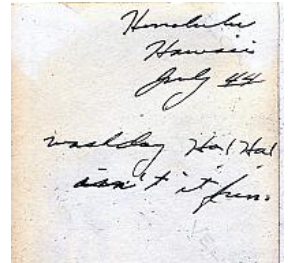 Honolulu
Hawaii
July 44
washday Ha! Ha!
isn't it fun.